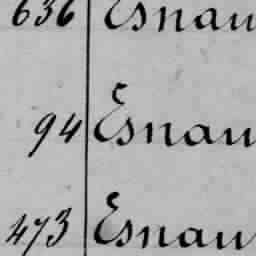 636 Esnau
94 Esnau
473 Esnau